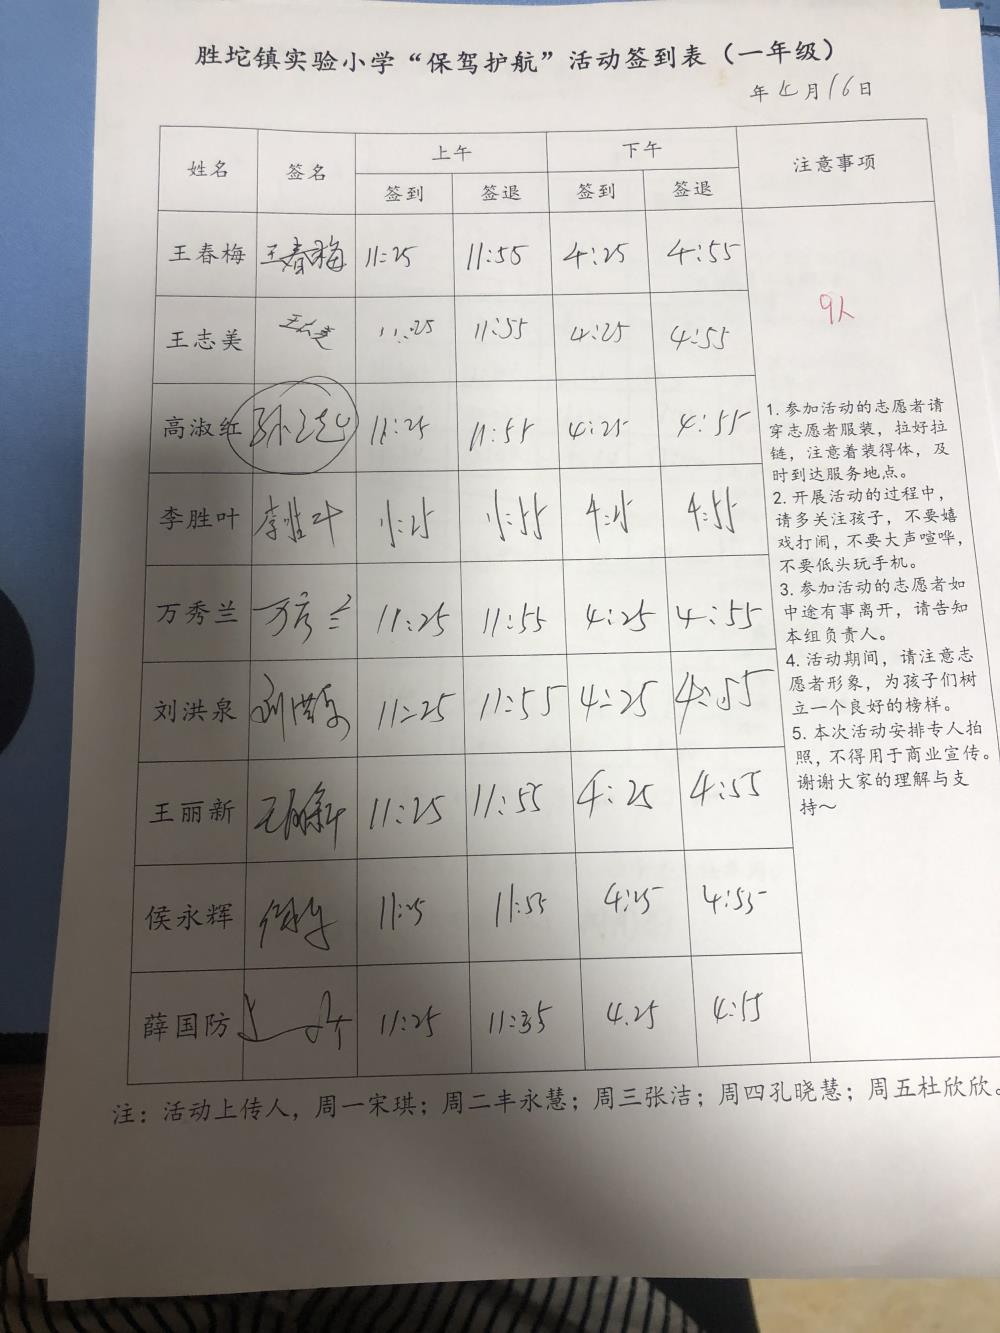 胜坨镇实验小学“保驾护航”活动签到表（一年级）
年 月16日
姓名 签名 上午 下午 注意事项
签到 签退 签到 签退
王春梅 王春梅 11:25 11:55 4:25 4:55
9人
王志美 王志美 11:25 11:55 4:25 4:55
高淑红 11:25 11:55 4:25 4:55
李胜叶 李胜叶 11:25 11:55 4:25 4:55
万秀兰 万秀兰 11:25 11:55 4:25 4:55
刘洪泉 刘洪泉 11:25 11:55 4:25 4:55
王丽新 王丽新 11:25 11:55 4:25 4:55
侯永辉 11:25 11:55 4:25 4:55
薛国防 11:25 11:35 4.25 4:55
1. 参加活动的志愿者请
穿志愿者服装，拉好拉
链，注意着装得体，及
时到达服务地点。
2. 开展活动的过程中，
请多关注孩子，不要嬉
戏打闹，不要大声喧哗，
不要低头玩手机。
3. 参加活动的志愿者如
中途有事离开，请告知
本组负责人。
4. 活动期间，请注意志
愿者形象，为孩子们树
立一个良好的榜样。
5. 本次活动安排专人拍
照，不得用于商业宣传。
谢谢大家的理解与支
持～
注：活动上传人，周一宋琪；周二丰永慧；周三张洁；周四孔晓慧；周五杜欣欣。